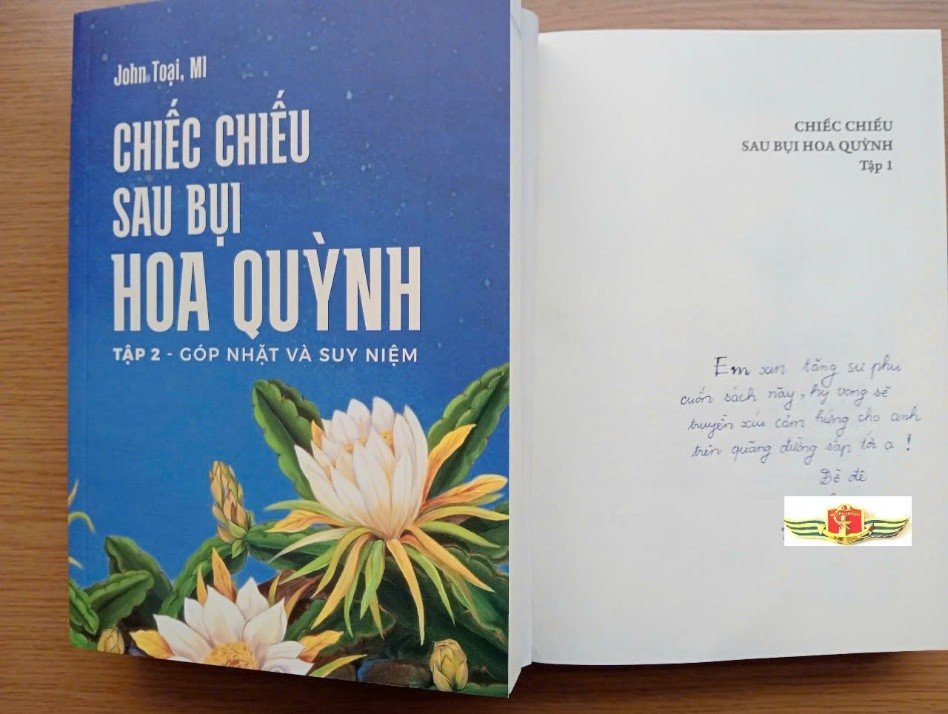 John Toại, MI
CHIẾC CHIẾU
SAU BỤI
HOA QUỲNH
TẬP 2 - GÓP NHẶT VÀ SUY NIỆM
CHIẾC CHIẾU
SAU BỤI HOA QUỲNH
Tập 1
Em xin tặng sư phụ
cuốn sách này, hy vọng sẽ
truyền xíu cảm hứng cho anh
trên quãng đường sắp tới ạ!
Đồ đệ